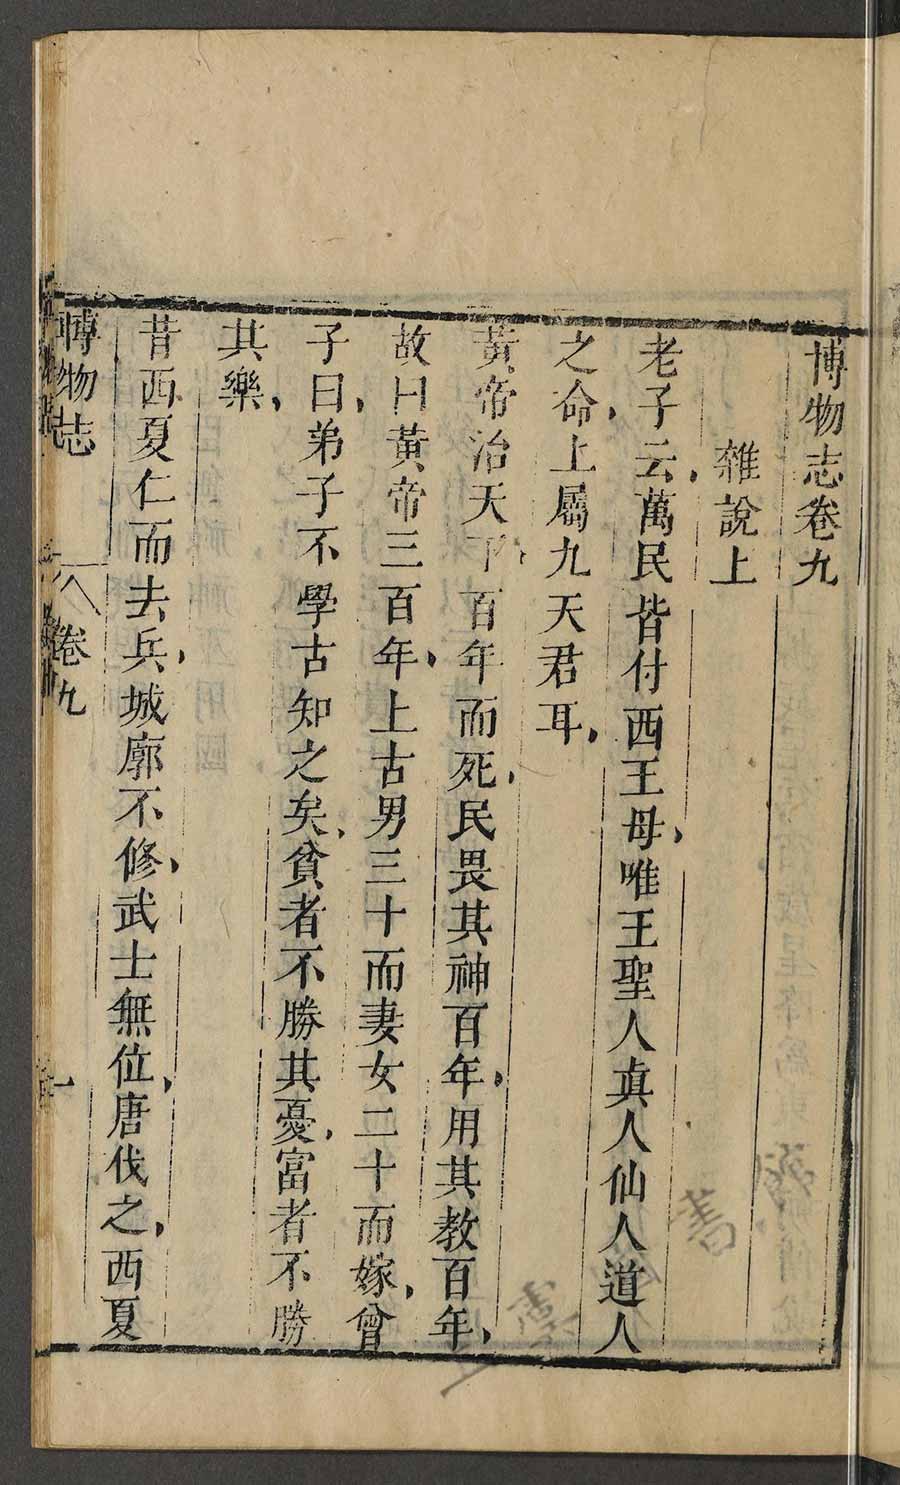 博物志卷九
雜說上
老子云，萬民皆付西王母，唯王聖人真人仙人道人
之命，上屬九天君耳，
黃帝治天下百年而死，民畏其神百年，用其教百年，
故曰黃帝三百年，上古男三十而妻女二十而嫁，曾
子曰，弟子不學古知之矣，貧者不勝其憂，富者不勝
其樂，
昔西夏仁而去兵，城廓不修，武士無位，唐伐之，西夏
博物志 卷九 一